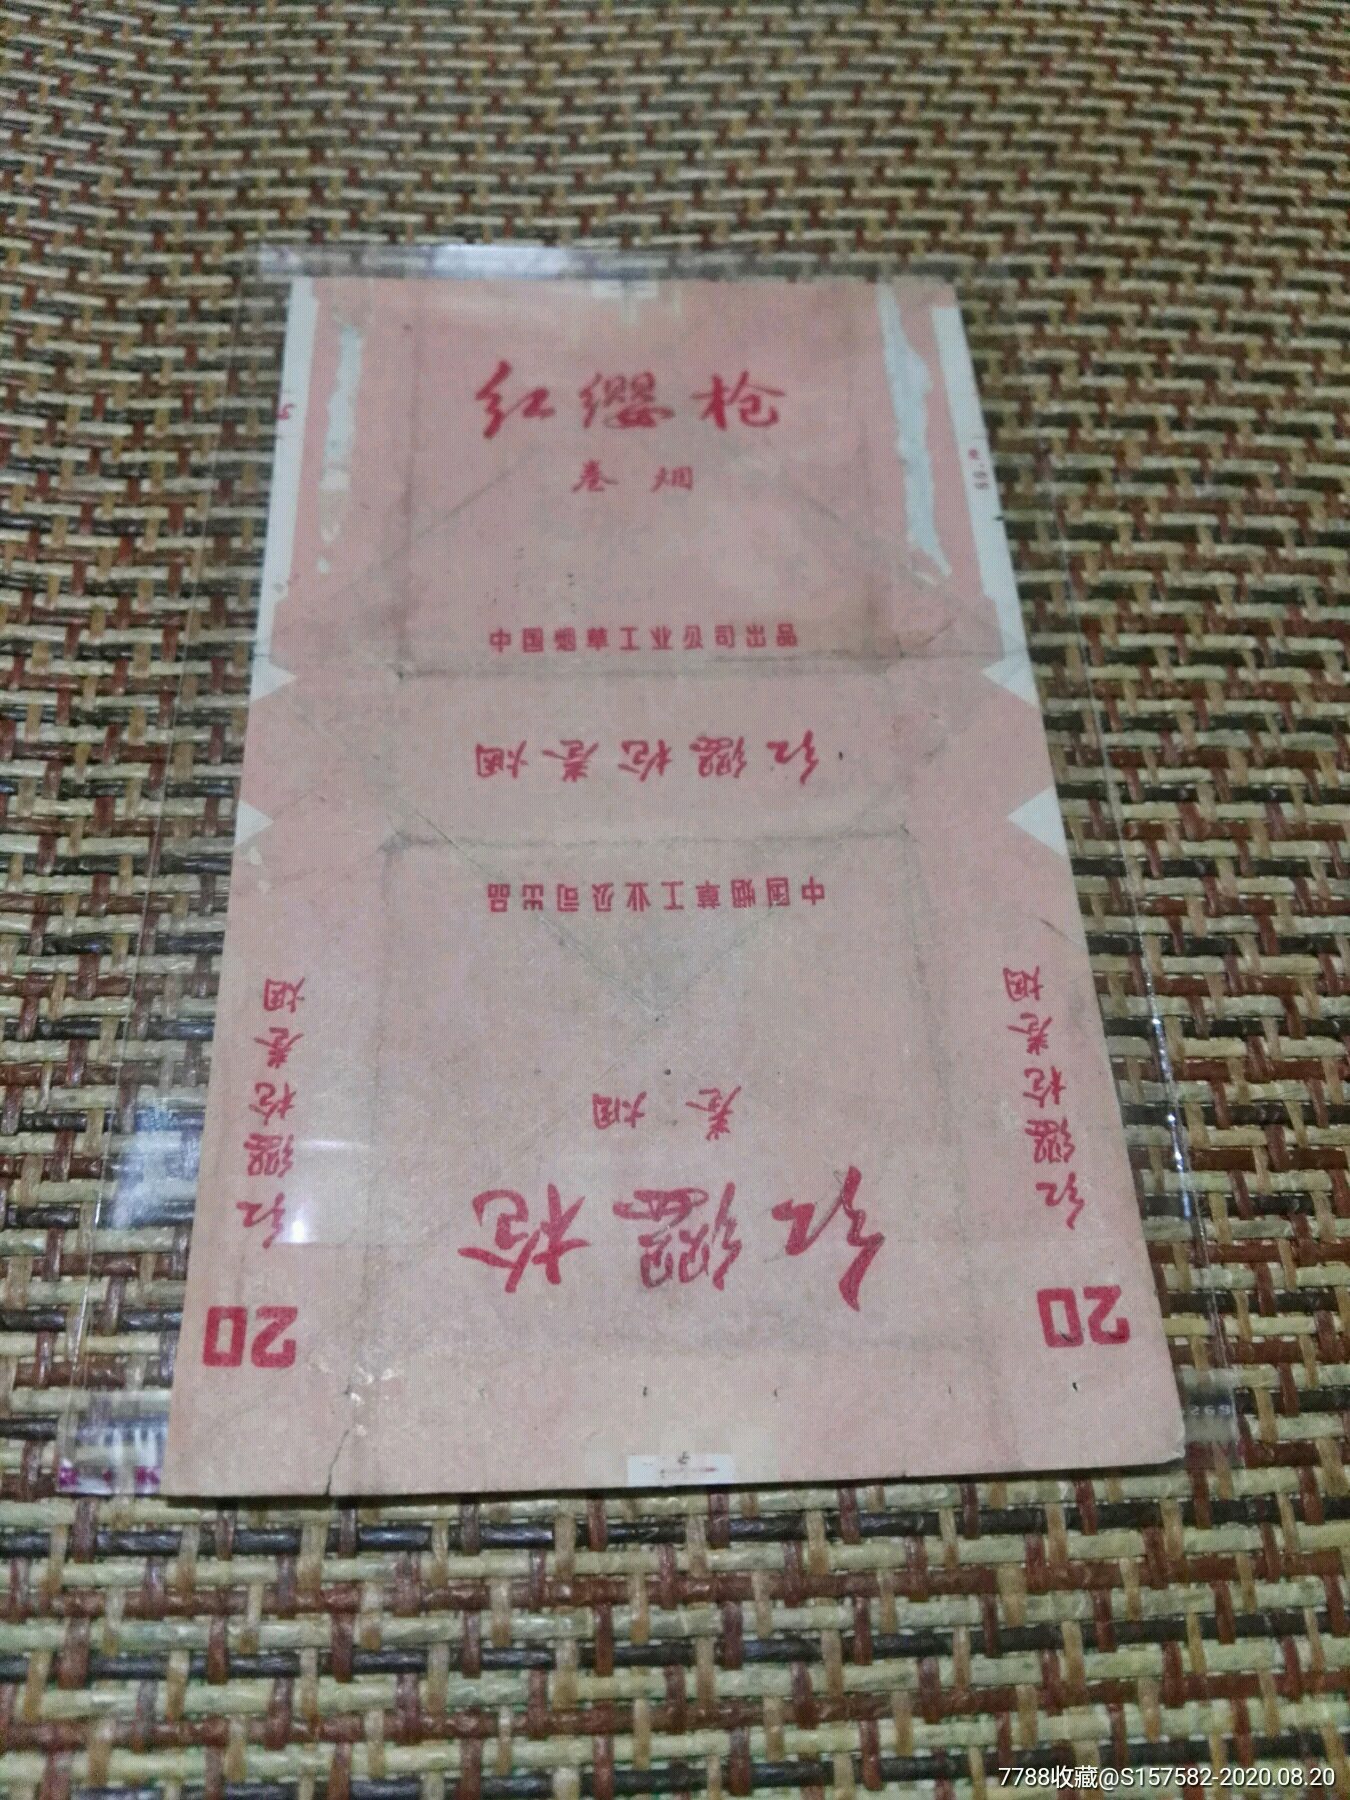 红缨枪
卷烟
中国烟草工业公司出品
红缨枪卷烟
中国烟草工业公司出品
卷烟
红缨枪
红缨枪卷烟
20
红缨枪卷烟
20
5
7788收藏@S157582-2020.08.20